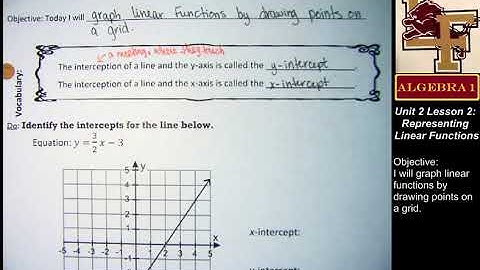 Objective: Today I will graph linear functions by drawing points on
a grid.
a meeting, where they touch
The interception of a line and the y-axis is called the y-intercept.
The interception of a line and the x-axis is called the x-intercept.
Vocabulary:
Do: Identify the intercepts for the line below.
Equation: y = 3/2 x − 3
y
5
4
3
2
1
x
-5 -4 -3 -2 -1 1 2 3 4 5
-1
x-intercept:
y-intercept:
LF
ALGEBRA 1
Unit 2 Lesson 2:
Representing
Linear Functions
Objective:
I will graph linear
functions by
drawing points on
a grid.